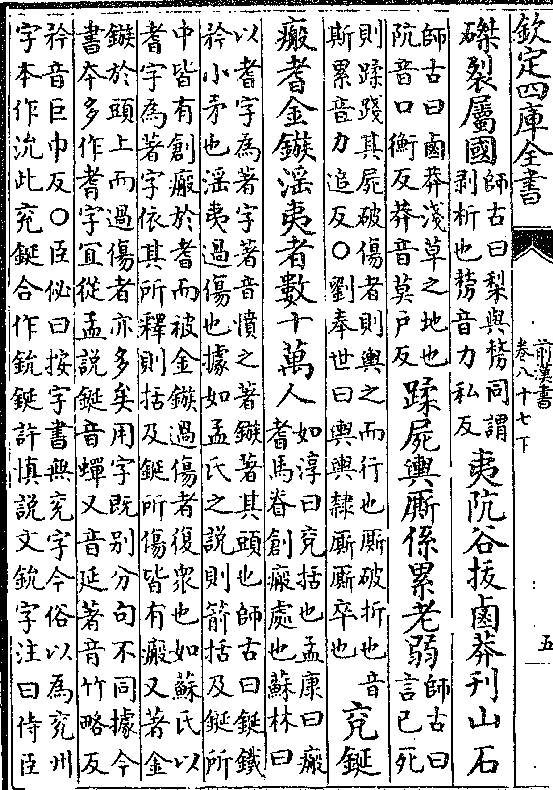 欽定四庫全書
前漢書
卷八十七下
五
磔裂屬國師古曰梨與剺同謂
剥析也剺音力私反夷阬谷拔鹵莽刋山石
師古曰鹵莽淺草之地也
阬音口衡反莽音莫户反蹂屍輿厮係累老弱師古曰
言已死
則蹂踐其屍破傷者則輿之而行也厮破折也音
斯累音力追反〇劉奉世曰輿輿隷厮厮卒也兖鋋
瘢耆金鏃淫夷者數十萬人如淳曰兖括也孟康曰瘢
耆馬脊創瘢處也蘇林曰
以耆字為著字著音憤之著鏃著其頭也師古曰鋋鐵
矜小矛也淫夷過傷也據如孟氏之説則箭括及鋋所
中皆有創瘢於耆而被金鏃過傷者復衆也如蘇氏以
耆字為著字依其所釋則括及鋋所傷皆有瘢又著金
鏃於頭上而過傷者亦多矣用字既别分句不同據今
書本多作耆字宜從孟説鋋音蟬又音延著音竹略反
矜音巨巾反〇臣佖曰按字書無兖字今俗以為兖州
字本作沇此兖鋋合作鈗鋋許慎説文鈗字注曰侍臣